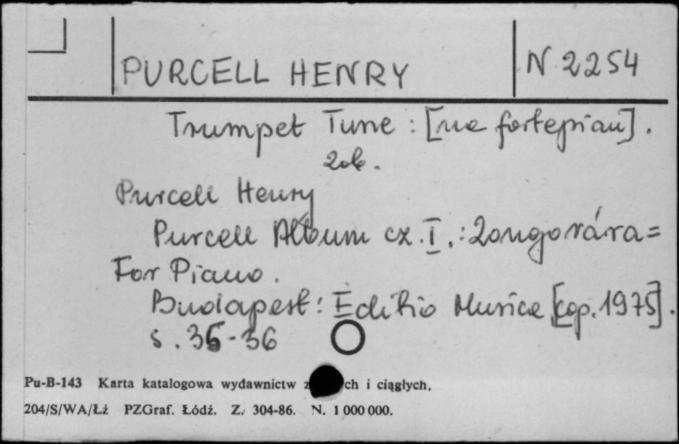 PURCELL HENRY
N 2254
Trumpet Tune : [na fortepian].
Zob.
Purcell Henry
Purcell Album cz. I. : Zongorára =
For Piano.
Budapest : Editio Musica [cop. 1975].
s. 36-36
Pu-B-143 Karta katalogowa wydawnictw z ch i ciągłych.
204/S/WA/Łż PZGraf. Łódź. Z. 304-86. N. 1 000 000.